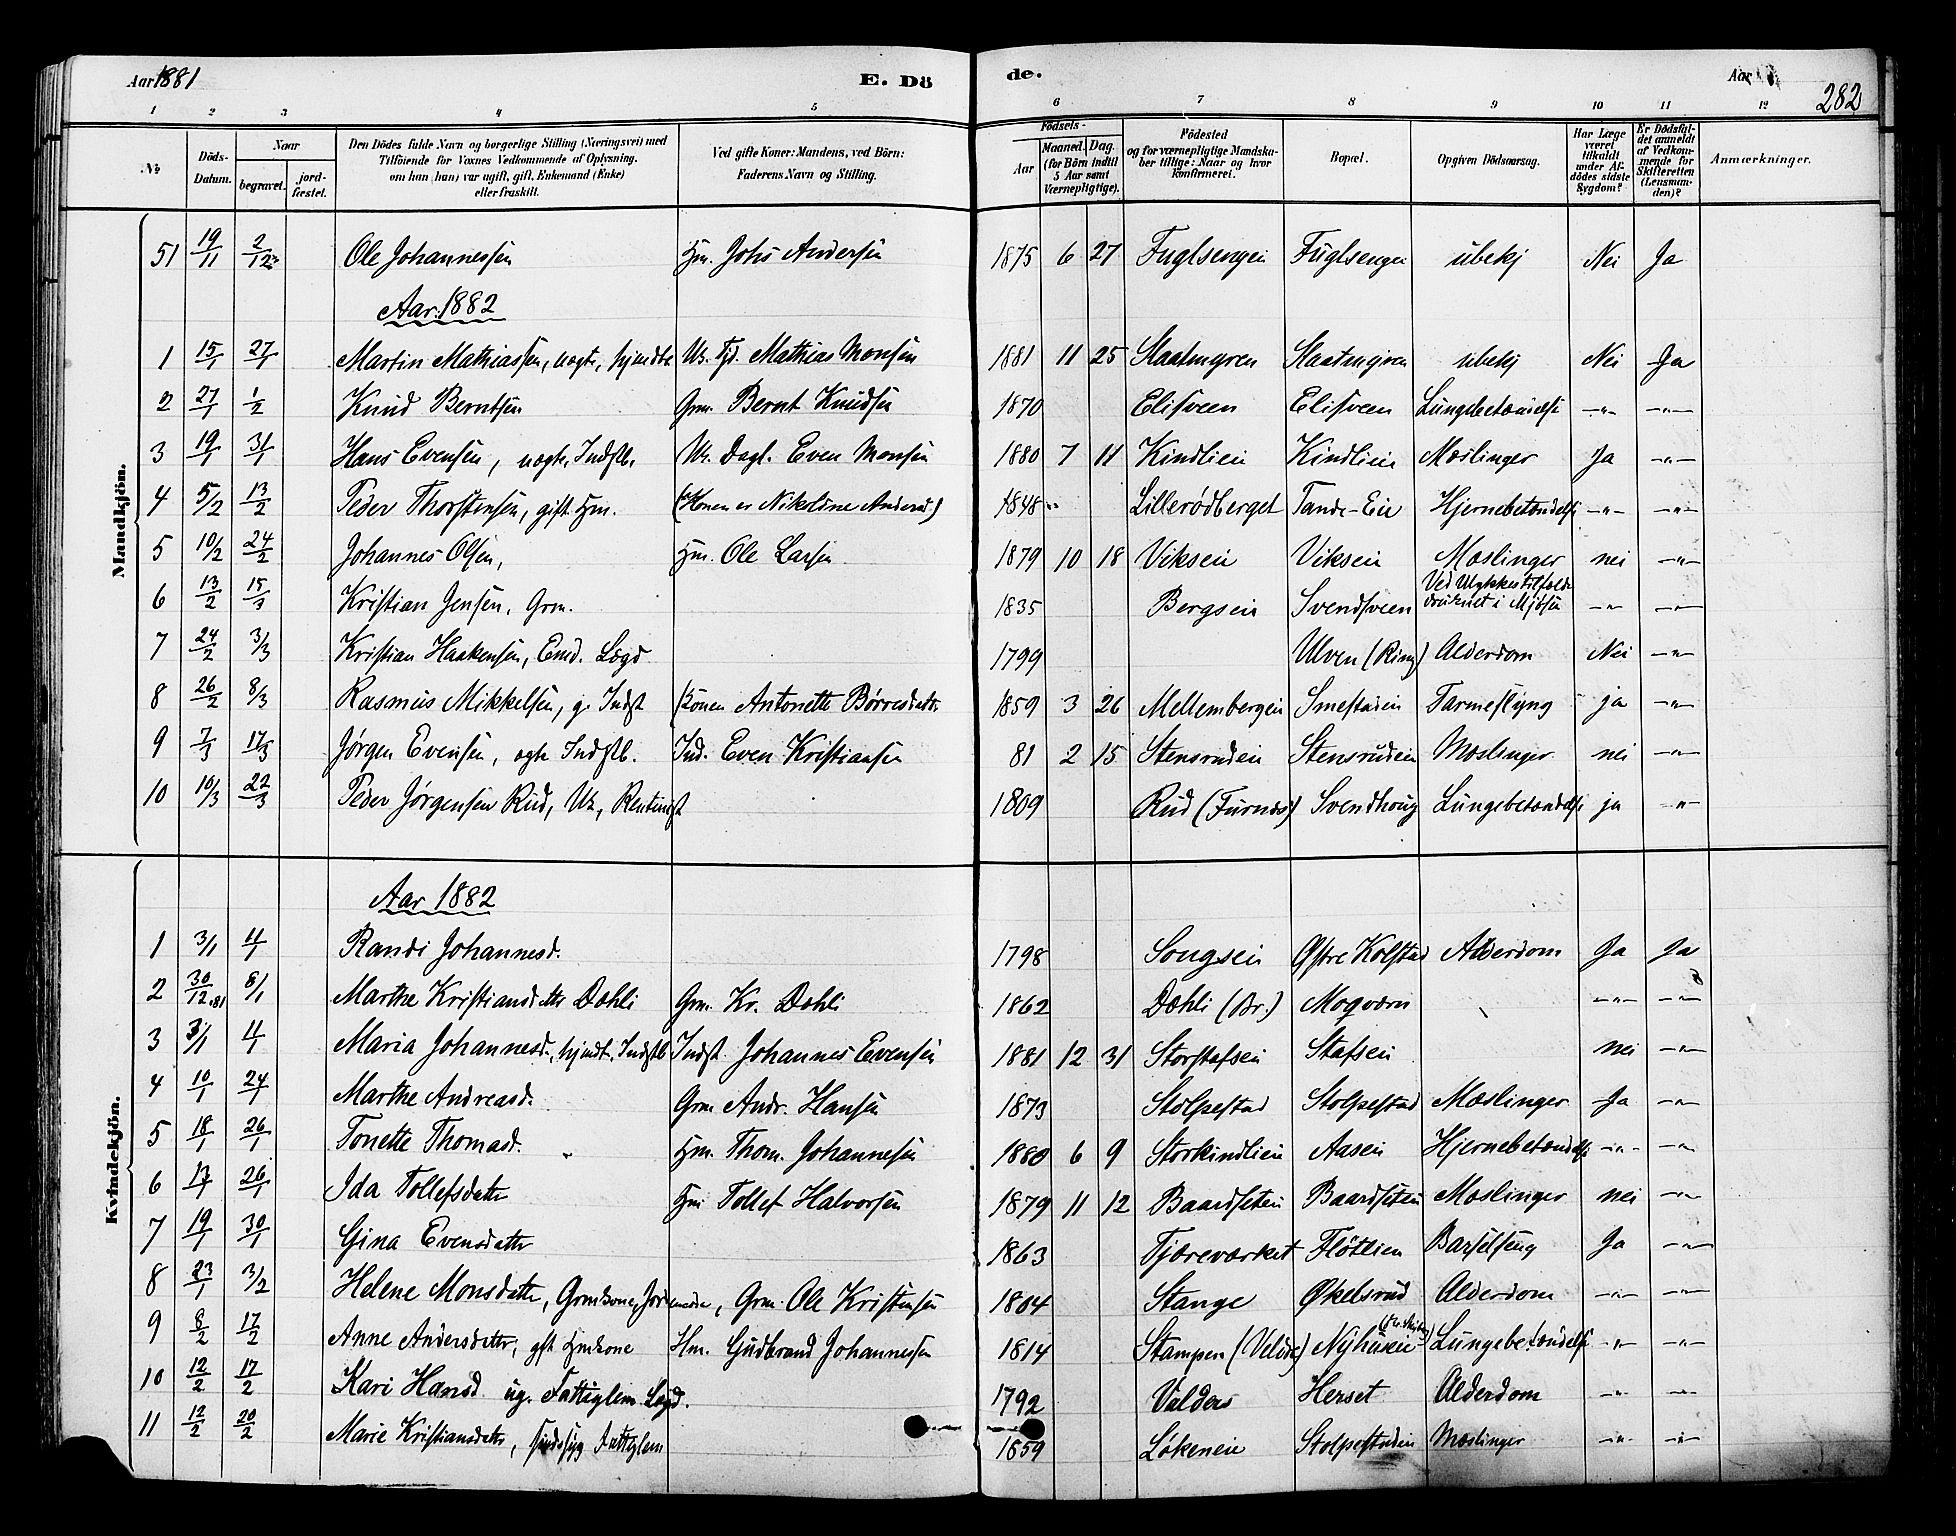 Aar 1881 E. Dö de. Aar 282
1 2 3 4 5 6 7 8 9 10 11 12
No Döds-Datum. Naar begravet. jordfæstet. Den Dödes fulde Navn og borgerlige Stilling (Næringsvei) med Tilföiende for Voxnes Vedkommende af Oplysning, om han (hun) var ugift, gift, Enkemand (Enke) eller fraskilt. Ved gifte Koner: Mandens, ved Börn: Faderens Navn og Stilling. Födsels- Aar Maaned. Dag. (for Börn indtil 5 Aar samt Værnepligtige). Födested og for værnepligtige Mandskaber tillige: Naar og hvor konfirmerei. Bopæl. Opgiven Dödsaarsag. Har Læge været tilkaldt under Afdödes sidste Sygdom? Er Dödsfaldet anmeldt af Vedkommende for Skifteretten (Lensmanden)? Anmærkninger.
Mandkjön.
51 19/11 2/12 Ole Johannessen Hm. Johs Andersen 1875 6 27 Fuglsengen Fuglsengen ubekj Nei Ja
Aar 1882
1 15/1 27/1 Martin Mathiassen, uægte, hjemdbt Mathias Monsen 1881 11 25 ubekj Nei Ja
2 27/1 1/2 Knud Berntsen Grm. Bernt Knudsen 1870 Elisveen Elisveen Lungebetændelse -"- -"-
3 19/1 31/1 Hans Evensen, uægte, Indstb. Uk. Dagl. Even Monsen 1880 7 11 Kindlien Kindlien Mæslinger Ja -"-
4 5/2 13/2 Peder Thorstensen, gift Hm. (Konen er Nikoline Andersd.) 1848 Lillerødberget Tande-Eie Hjernebetændelse -"- -"-
5 10/2 24/2 Johannes Olsen, Hm. Ole Larsen 1879 10 18 Vikseie Vikseie Mæslinger nei -"-
6 13/2 15/3 Kristian Jensen, Grm. 1835 Bergseie Svendsveen Ved Ulykkestilfælde druknet i Mjøsen -"- -"-
7 24/2 3/3 Kristian Haakensen, Enkd. Lægd 1799 Ulven (Ring) Alderdom Nei -"-
8 26/2 8/3 Rasmus Mikkelsen, g. Indst Konen Antonette Børresdatter 1859 3 26 Mellembergen Smestadeie Tarmeslyng ja -"-
9 7/3 17/3 Jørgen Evensen, ægte Indstb. Ind. Even Kristiansen 81 2 15 Stensrudeie Stensrudeie Mæslinger nei -"-
10 10/3 22/3 Peder Jørgensen Rud, Uk, Rentenist 1809 Rud (Furnæs) Svendhoug Lungebetændelse ja -"-
Kvindekjön.
Aar 1882
1 3/1 11/1 Randi Johannesd. 1798 Songseie Østre Kolstad Alderdom Ja Ja
2 30/12.81 8/1 Marthe Kristiansdatter Dæhli Grm. Kr. Dæhli 1862 Dæhli (Br.) Moqværn -"- -"-
3 3/1 11/1 Maria Johannesd., hjmdt. Indstb Indst Johannes Evensen 1881 12 31 Storstafseie Stafseie nei -"-
4 10/1 24/1 Marthe Andreasd. Grm Andr. Hansen 1873 Stolpestad Stolpestad Mæslinger Ja -"-
5 18/1 26/1 Tonette Thomasd. Hm. Thom. Johannesen 1880 6 9 Storkindlien Aaseie Hjernebetændelse -"- -"-
6 17/1 26/1 Ida Tollefsdatter Hm Tollef Halvorsen 1879 11 12 Baardseteie Baardseteie Mæslinger nei -"-
7 19/1 30/1 Gina Evensdatter 1863 Tjæreværket Fløtlien Barselseng Ja -"-
8 23/1 3/2 Helene Monsdatter, Grmkone, Jordemoder, Grm. Ole Kristensen 1804 Stange Økelsrud Alderdom -"- -"-
9 8/2 17/2 Anne Andersdatter, gft Hmkone Hm. Gudbrand Johannesen 1814 Stampen Nyhuseie Lungebetændelse -"- -"-
10 12/2 17/2 Kari Hansd ug. Fattiglem Lægd. 1792 Valders Herset Alderdom -"- -"-
11 12/2 20/2 Marie Kristiansdatter, sindssyg Fattiglem 1859 Løkeneie Stolpestadeie Mæslinger -"- -"-